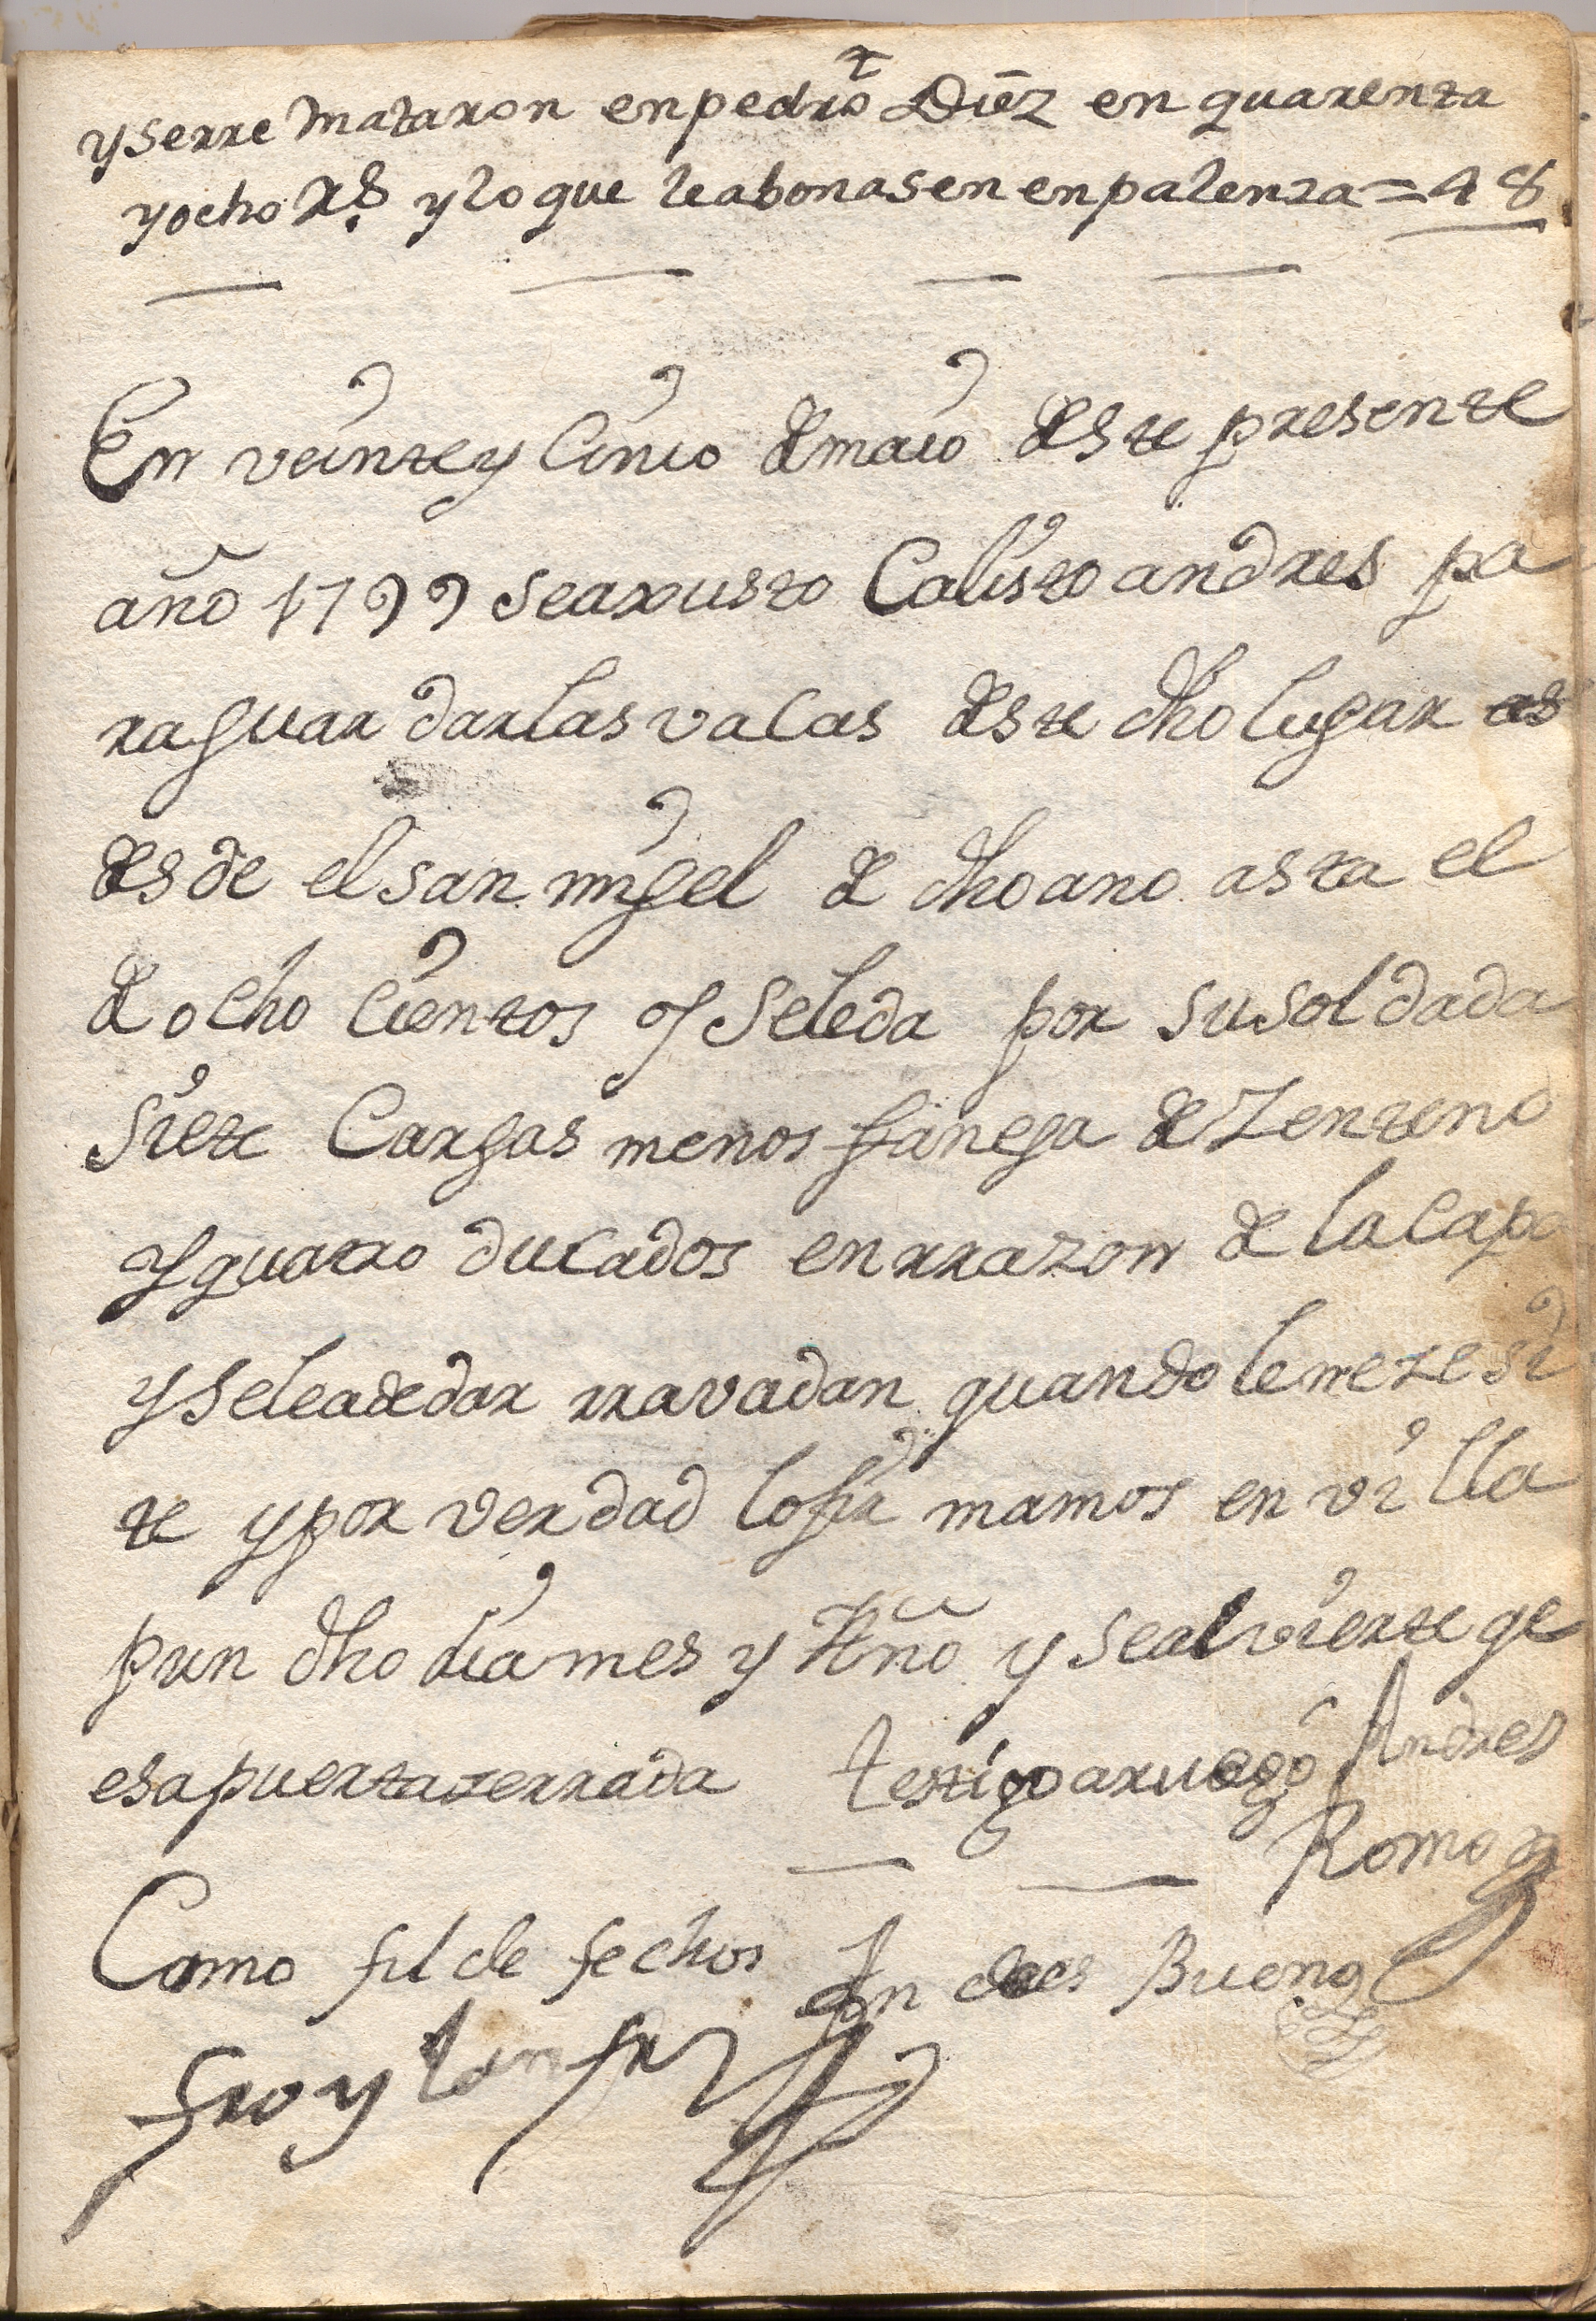 y serre mataron en pedro Diez en quarenta
y ocho Rs. y lo que le abonasen en palenza = 48
En veinte y Cinco de maio deste presente
año 1799 se axusto Calisto andres pa
ra guardar las vacas deste dho lugar
desde el san migel de dho ano asta el
de ocho cientos y se le da por su soldada
siete Cargas menos fanega de Zenteno
y quatro ducados en rrazon de la capa
y se le a de dar rravadan quando le nezesi
te y por verdad lo firmamos en villa
prun dho dia mes y Año y se alvierte qe
es a puerta zerrada testigo a ruego Andres
Romo
Como fil de fechos Andres Bueno
Froylan